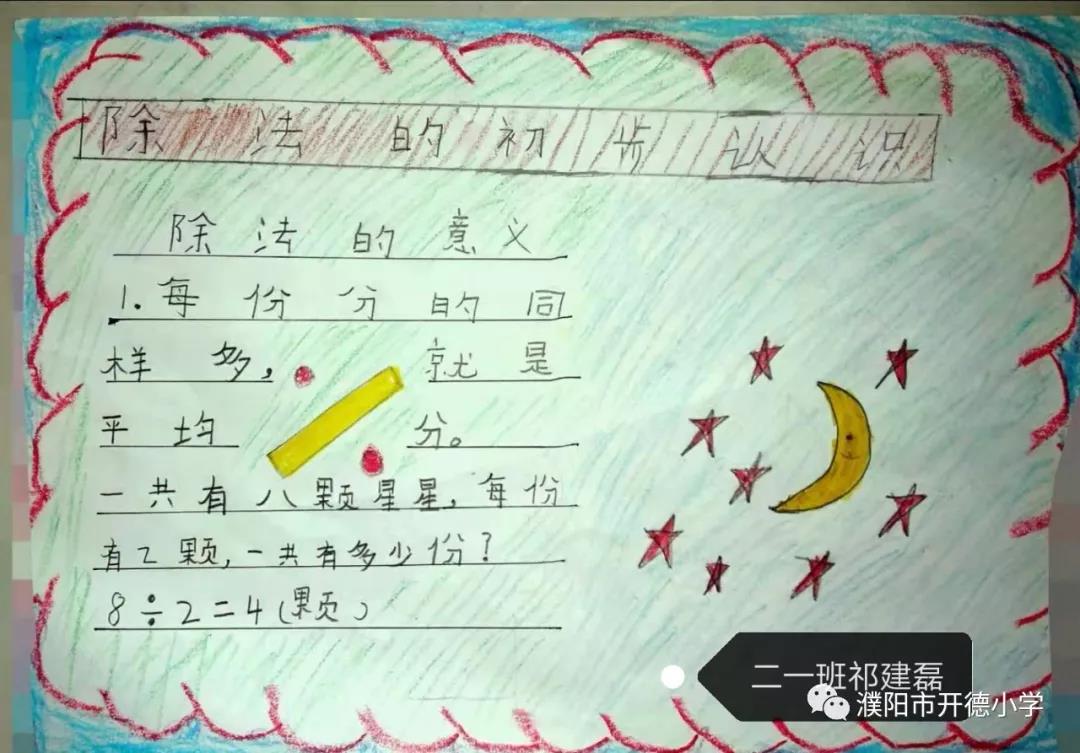 除法的初步认识
除法的意义
1.每份分的同
样多，就是
平均分。
一共有八颗星星，每份
有2颗，一共有多少份？
8÷2=4(颗)
二一班祁建磊
濮阳市开德小学